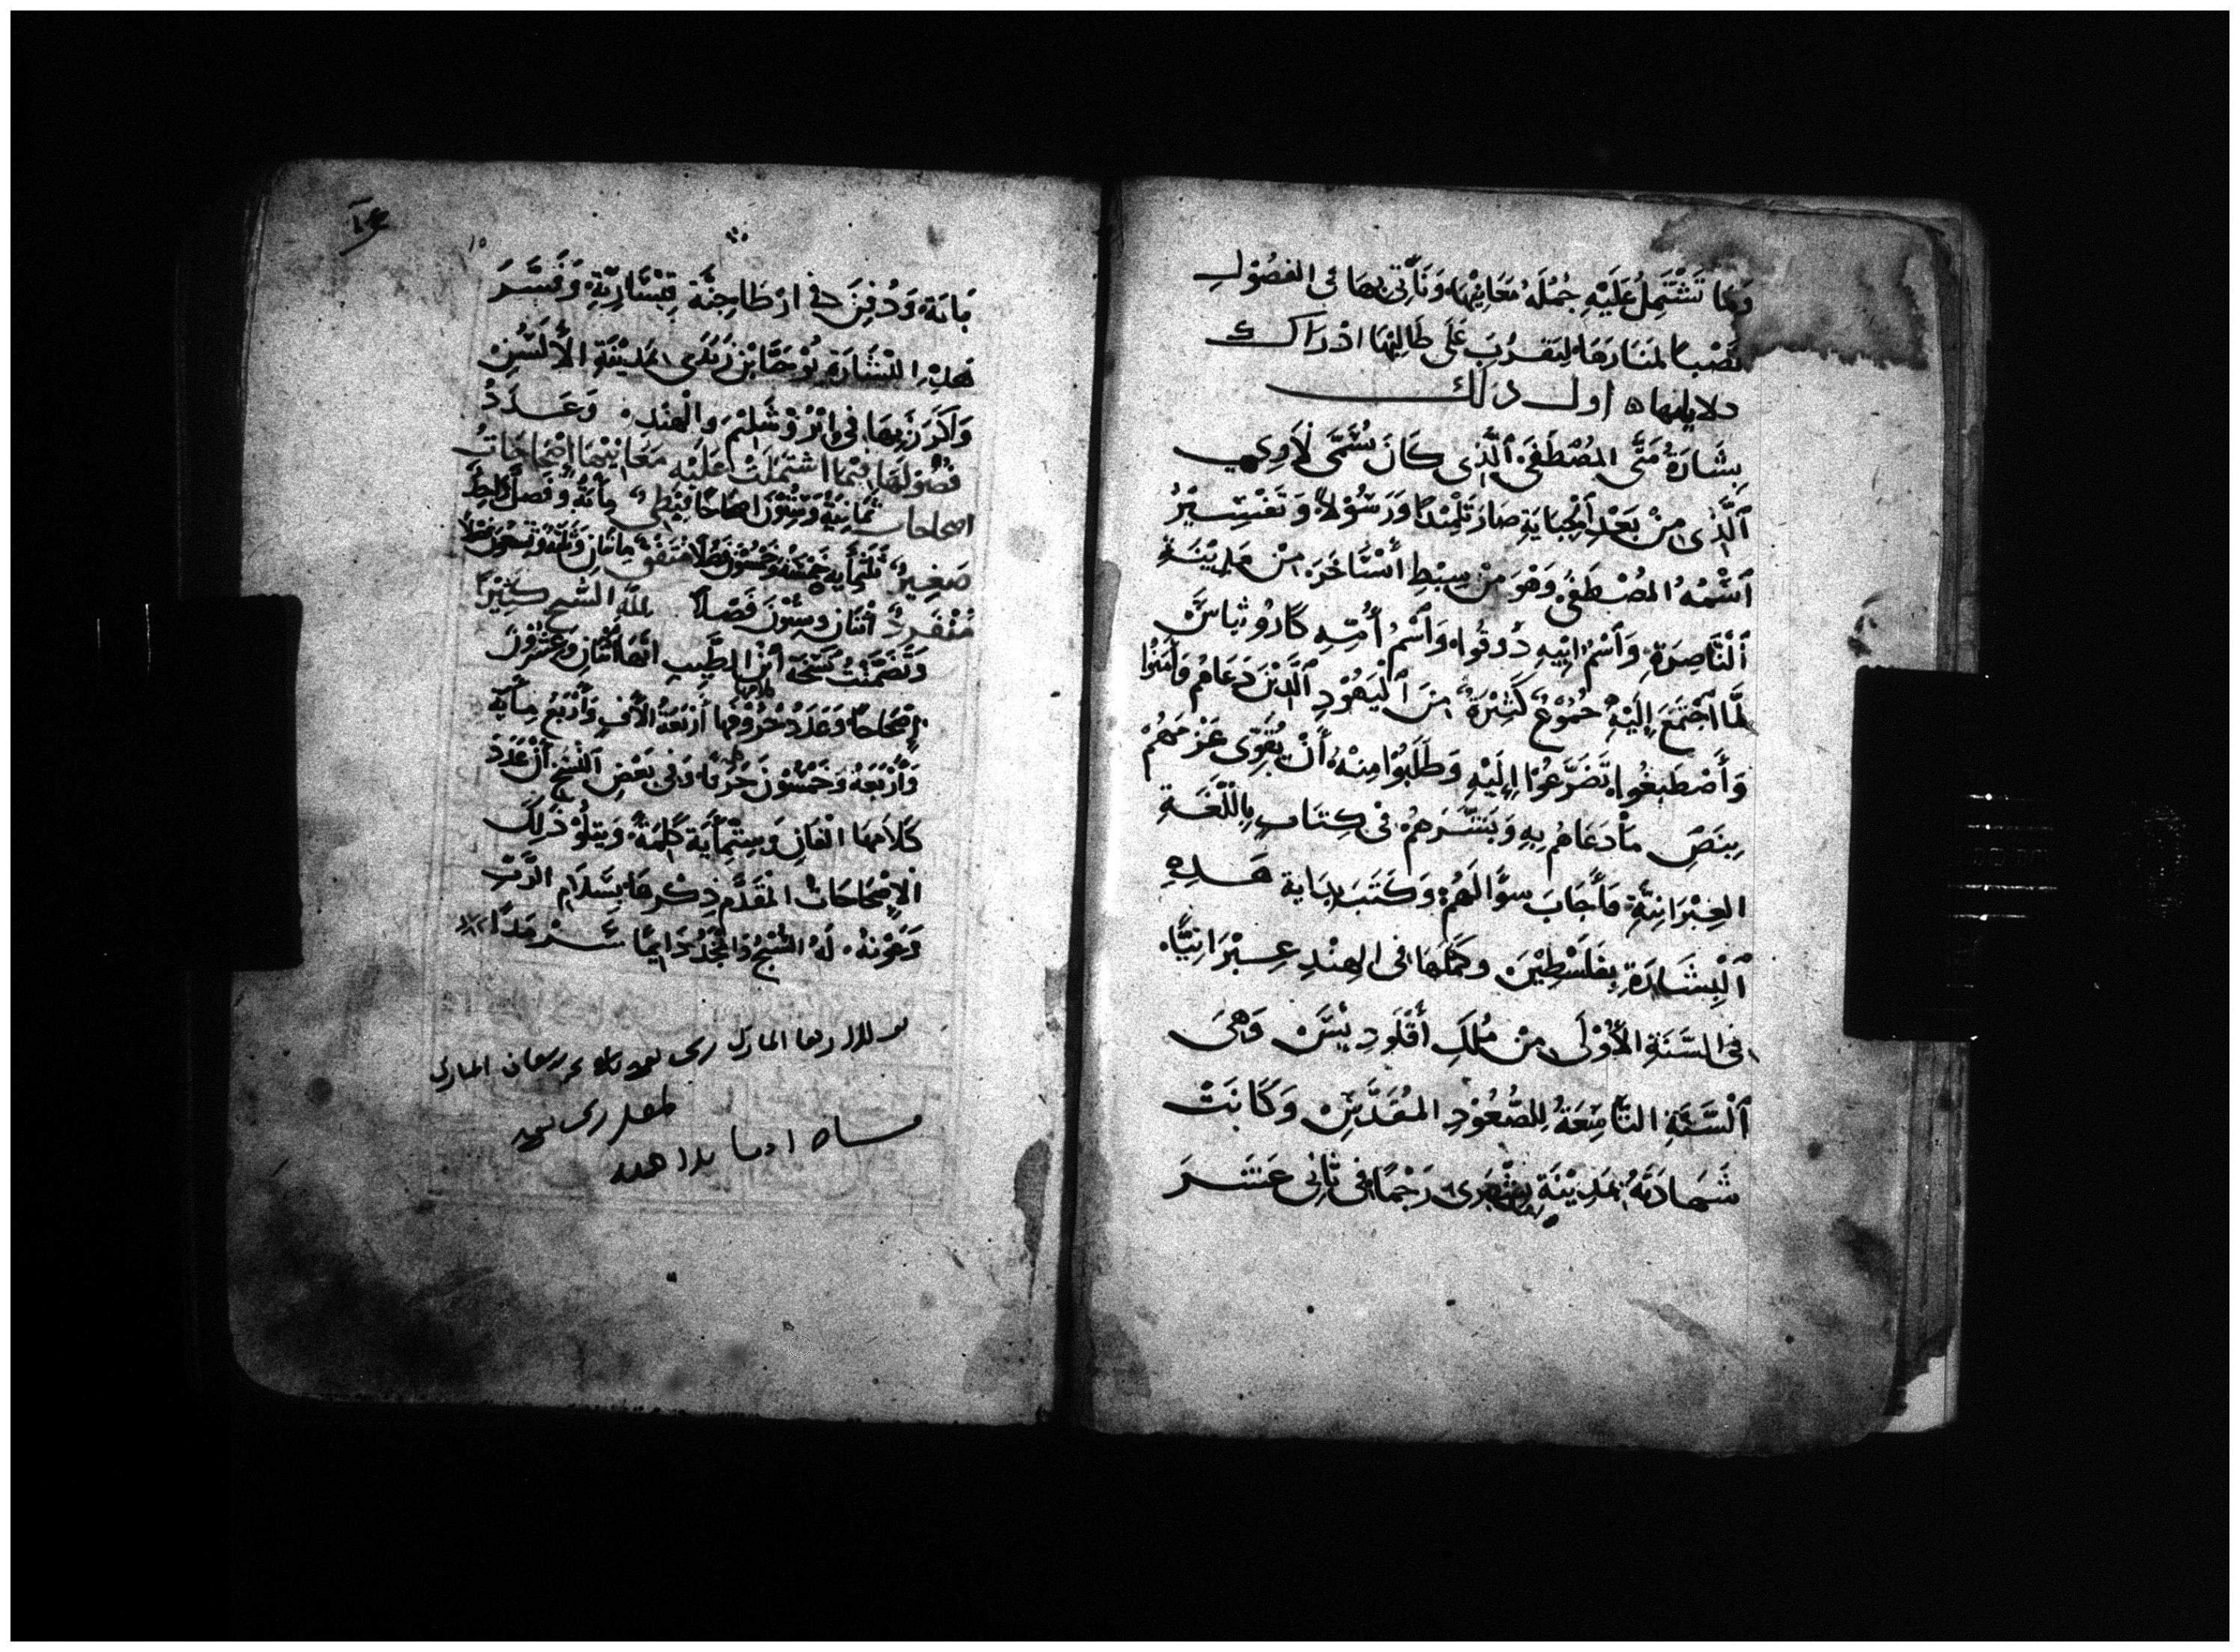 وَمَا تَشْتَمِلُ عَلَيْهِ جُمْلَةُ مَعَانِيْهَا وَنَأْتِي بِهَا فى الفصُوْلِ
نَصْبًا لمنَارَهَا لِيَقرُبَ عَلَى طَالِبِهَا ادْرَاكُ
دلايلها ۞ اول ذلك
بِشَارَةُ مَتَّى المُصْطَفَى ٱلَّذِى كَانَ سُمَّى لَاوِي
ٱلَّذِى مِنْ بَعْدِ ٱلْجِبَايَةِ صَارَ تَلْمِيْدًا وَرَسُوْلًا وَتَفْسِيْرُ
ٱسْمُهُ المُصْطَفَى وَهْوَ مِنْ سِبْطِ أَسْتَاخَرَ مِنْ مَدِيْنَةِ
ٱلْنَّاصِرَةِ وَٱسْمُ ابِيْهِ دُوقُوا وَٱسْمُ أُمِّهِ كَارُوثياسَ
لَمَّا ٱجْتَمَعَ إِلَيْهِ جُمُوْعٌ كَثِيْرَةٌ مِنَ ٱلْيَهُوْدِ ٱلَّذِيْنَ دَعَاهُمْ فَأَمَنُوْا
وَأَصْطَبغُوا تَضَرَّعُوْا إِلَيْهِ وَطَلَبُوْا مِنْهُ أَنْ يُقَوِّى عَزْمَهُمْ
بِنَصِّ مَا دَعَاهُم بِهِ وَبَشَّرَهُمْ فى كِتَابٍ بِاللُّغَةِ
العِبْرَانِيَّةِ فَأَجَابَ سوًالَهُمْ وَكَتَبَ بِدَاية هَدِهِ
ٱلْبِشَارَةِ بِفَلَسْطِيْنَ وكَمَّلَهَا فى الهِنْدِ عِبْرَانِيًّا
فى السَّنَةِ الأُوْلَى مِنْ مُلكِ أَقْلَودِيْسَ وَهِىَ
ٱلْسَّنَةِ التَّاسِعَةُ لِلصُّعُوْدِ المُقَدَّسِ وَكَانَتْ
شَهَادَتَهُ بمَدِيْنَةِ بِشْبَرِى رَجْمًا فى ثَانِى عَشَرَ
بَابَة وَدُفِنَ فى ارْطَاجِنَّةَ قِيْسَارِيَّةِ وَفَسَّرَ
هَذِهِ الْبشَارَةِ يُوْحَنَّا بْن زَبْدَى بمَدِيْنَةِ الأَلسُنِ
وَاكَرَزَ بِهَا فى اِيْرُوْشَلِيْمَ وَالْهِنْدِ وَعَدَدُ
فُصُوْلهَا فيْمَا اشتمَلَتْ عَليْهِ مَعَانِيْهَا اصْحَاحَاتُ
اصحاحات ثَمَانِيَةٌ وَسِتُّوْنَ اصْحَاحًا قِبْطِى مِائَةُ وَفَصلٌ وَاحِدٌ
صَغِيرٌ ثلثمِأَية خَمْسَةٌ وَخَمْسُوْنَ فَصْلًا مُتفَق مِائتَان وَثَلثَةٌ وَتِسْعُوْنَ فَصْلًا
مُنْفَرِدٌ أثْنَان وَسِتُّوْنَ فَصْلًا لله السّبح كَثِيْرًا
وَتَضَمَّنَتْ نُسْخَةُ ابْن الطَّيِب انّهَا اثْنَانِ وَعشْرُوْنَ
اصْحَاحًا وَعَدَدُ حُرُوْفُهَا أَرْبَعَةُ الآفٍ وَأَرْبَعُ مِأيَة
وَأَرْبَعَةُ وَخَمْسُوْنَ حَرْفًا وَفى بَعْضِ النُّسَخِ أَنَّ عَدَدَ
كَلاَمهَا الْفَان وَسِتُّمِأَيَة كَلِمَةٌ وَيَتلُوْ ذَلِكَ
الاِصْحَاحَات المُقَدَّم ذِكْرهَا بسَلاَم الرَّبّ
وَعَوْنهُ لَهُ السّبْحُ وَالمَجْدُ دَايمًا سَرْمَدًا